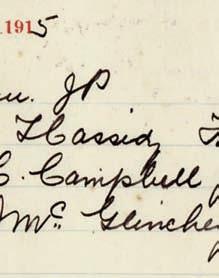 1915
JP
Hassidy
C. Campbell
Mc Glinchey